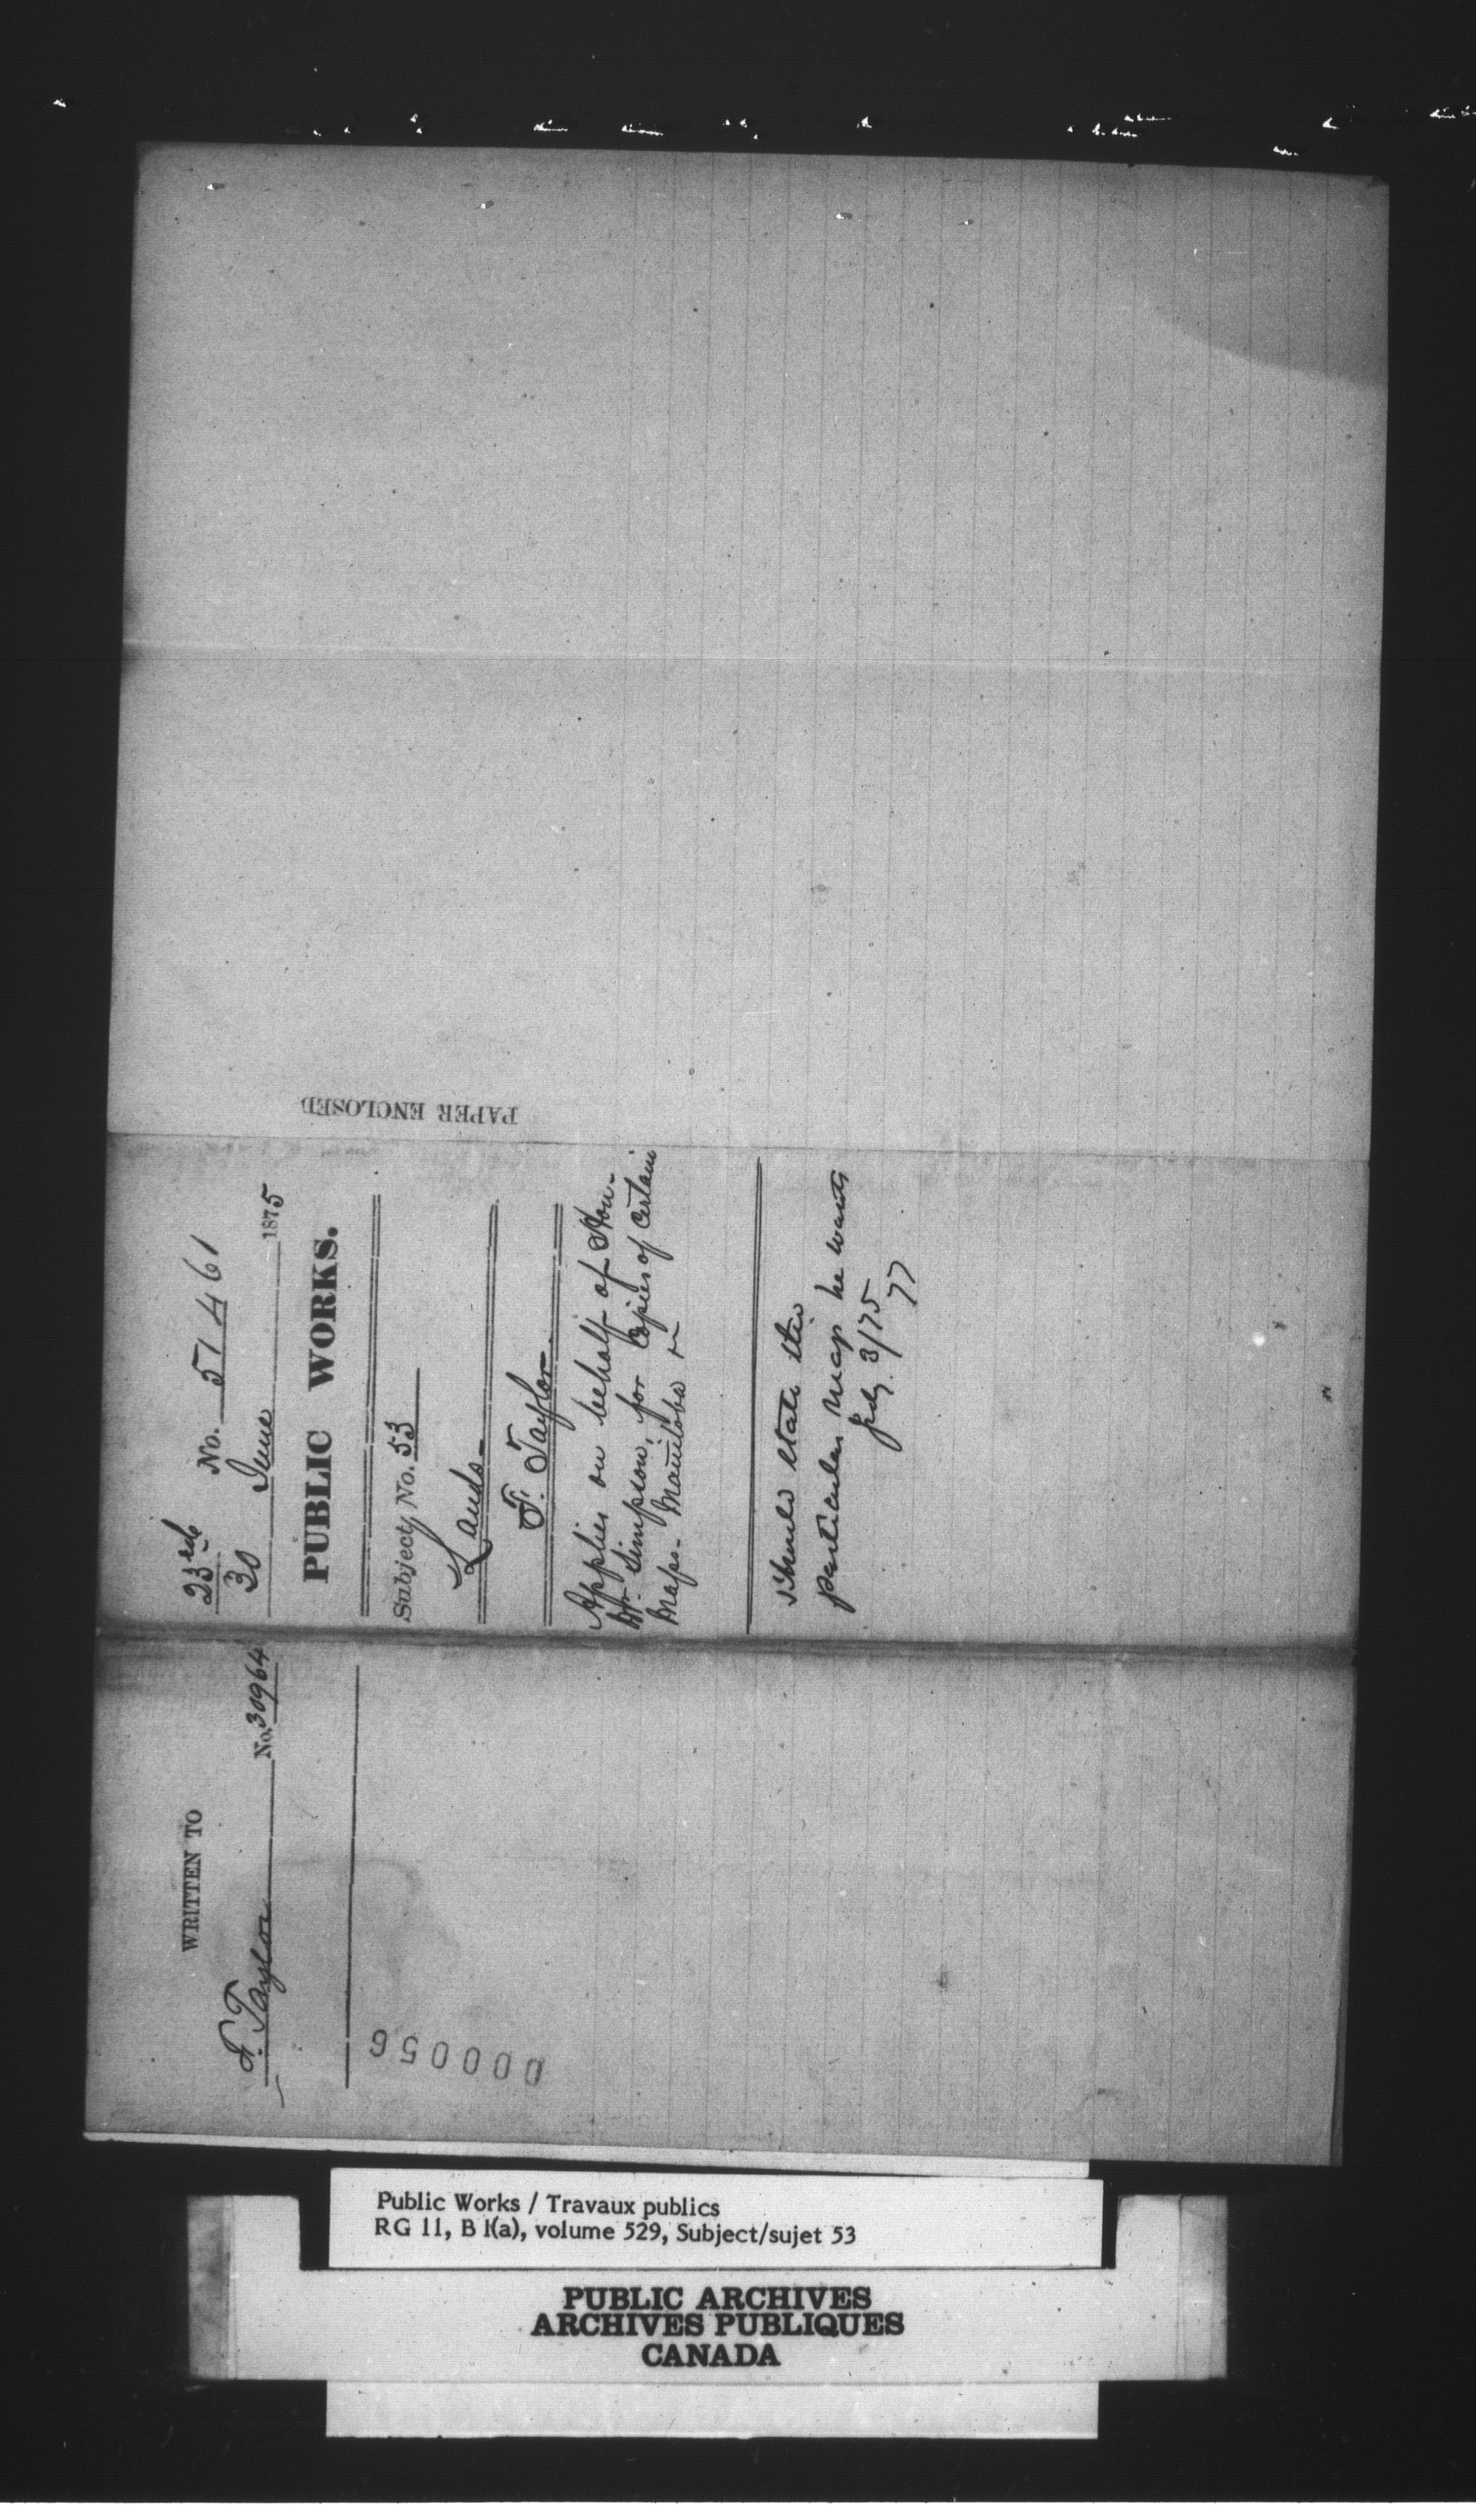 PAPER ENCLOSED
23rd No. 51461
30 June 1875
PUBLIC WORKS.
Subject, No. 53
Lands-
F. Taylor.
Applies on behalf of Hon-
Mr. Simpson, for copies of certain
Maps- Manitoba
Should state the
particular map he wants
July. 3/75
WRITTEN TO
F. Taylor No. 30964
000056
Public Works / Travaux publics
RG 11, B 1(a), volume 529, Subject/sujet 53
PUBLIC ARCHIVES
ARCHIVES PUBLIQUES
CANADA